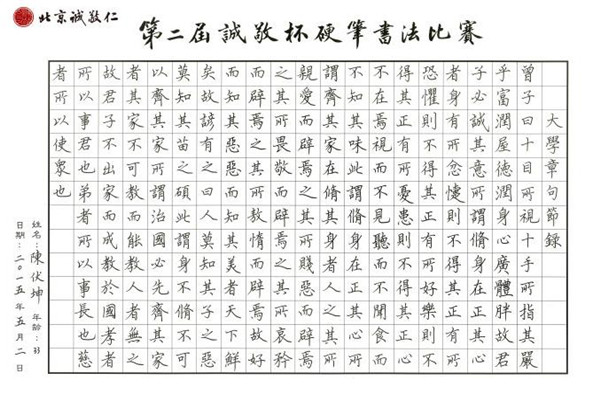 北京誠敬仁
第二屆誠敬杯硬筆書法比賽
大學章句節錄
曾子曰十目所視十手所指其嚴
乎富潤屋德潤身心廣體胖故君
子必誠其意所謂脩身在正其心
者身有所忿懥則不得其正有所
恐懼則不得其正有所好樂則不
得其正有所憂患則不得其正心
不在焉視而不見聽而不聞食而
不知其味此謂脩身在正其心所
謂齊其家在脩其身者人之其所
親愛而辟焉之其所賤惡而辟焉
之其所畏敬而辟焉之其所哀矜
而辟焉之其所敖惰而辟焉故好
而知其惡惡而知其美者天下鮮
矣故諺有之曰人莫知其子之惡
莫知其苗之碩此謂身不脩不可
以齊其家所謂治國必先齊其家
者其家不可教而能教人者無之
故君子不出家而成教於國孝者
所以事君也弟者所以事長也慈
者所以使眾也
姓名：陳伏坤 年齡：33
日期：二〇一五年五月二日